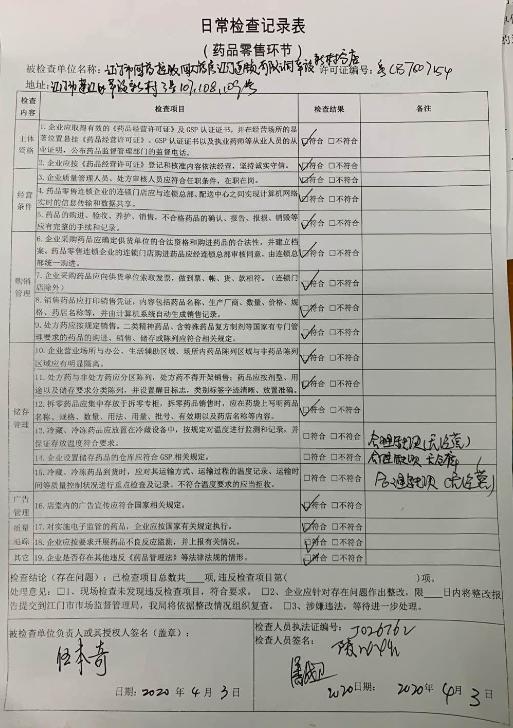 日常检查记录表
（药品零售环节）
被检查单位名称： 许可证编号：
地址：
检查内容 检查项目 检查结果 备注
主体资格
1.企业应取得有效的《药品经营许可证》及GSP认证证书，并在经营场所的显
著位置悬挂《药品经营许可证》、GSP认证证书以及执业药师等从业人员的从
业证明，公布药品监督管理部门的监督电话。
☑符合 □不符合
2.企业应按《药品经营许可证》登记和核准内容依法经营，坚持诚实守信。
☑符合 □不符合
经营条件
3.企业质量管理人员、处方审核人员应符合任职条件，在职在岗。
☑符合 □不符合
4.药品零售连锁企业的连锁门店应与连锁总部、配送中心之间实现计算机网络
实时的信息传输和数据共享。
☑符合 □不符合
5.药品的购进、验收、养护、销售，不合格药品的确认、报告、报损、销毁等
应有完整的手续和记录。
☑符合 □不符合
购销管理
6.企业采购药品应确定供货单位的合法资格和购进药品的合法性，并建立档
案。药品零售连锁企业的连锁门店购进药品应经连锁总部审核同意，由连锁总
部统一购进。
☑符合 □不符合
7.企业采购药品应向供货单位索取发票，做到票、帐、货、款相符。（连锁门
店除外）
☑符合 □不符合
8.销售药品应打印销售凭证，内容包括药品名称、生产厂商、数量、价格、规
格、药店名称等，并由计算机系统自动生成销售记录。
☑符合 □不符合
9.处方药应按规定销售。二类精神药品、含特殊药品复方制剂等国家有专门管
理要求的药品的购进、销售、储存或陈列应符合相关规定。
☑符合 □不符合
储存管理
10.企业营业场所与办公、生活辅助区域、场所内药品陈列区域与非药品陈列
区域应有明显隔离。
☑符合 □不符合
11.处方药与非处方药应分区陈列，处方药不得开架销售；药品应按剂型、用
途以及储存要求分类陈列，并设置醒目标志，类别标签字迹清晰、放置准确。
☑符合 □不符合
12.拆零药品应集中存放于拆零专柜，拆零药品销售时，应在药袋上写明药品
名称、规格、数量、用法、用量、批号、有效期以及药店名称等内容。
☑符合 □不符合
13.冷藏、冷冻药品应放置在冷藏设备中，按规定对温度进行监测和记录，并
保证存放温度符合要求。
□符合 □不符合
14.企业设置储存药品的仓库应符合GSP相关规定。
□符合 □不符合
15.冷藏、冷冻药品到货时，应对其运输方式、运输过程的温度记录、运输时
间等质量控制状况进行重点检查及记录。不符合温度要求的应当拒收。
□符合 □不符合
广告管理
16.店堂内的广告宣传应符合国家相关规定。
☑符合 □不符合
质量追踪
17.对实施电子监管的药品，企业应按国家有关规定执行。
☑符合 □不符合
18.企业应按要求开展药品不良反应监测，并上报有关情况。
☑符合 □不符合
其它
19.企业是否存在其他违反《药品管理法》等法律法规的情形。
☑符合 □不符合
检查结论（存在问题）：已检查项目总数共___项，违反检查项目第( )项。
处理意见：□1、现场检查未发现违反检查项目，符合要求。 □2、企业应针对存在问题作出整改，限___日内将整改报
告提交到江门市市场监督管理局，我局将依据整改情况组织复查。 □3、涉嫌违法，等待进一步处理。
被检查单位负责人或其授权人签名（盖章）：
伍本奇
日期：2020年4月3日
检查人员执法证编号：J026762
检查人员签名：
2020日期： 2020年4月3日